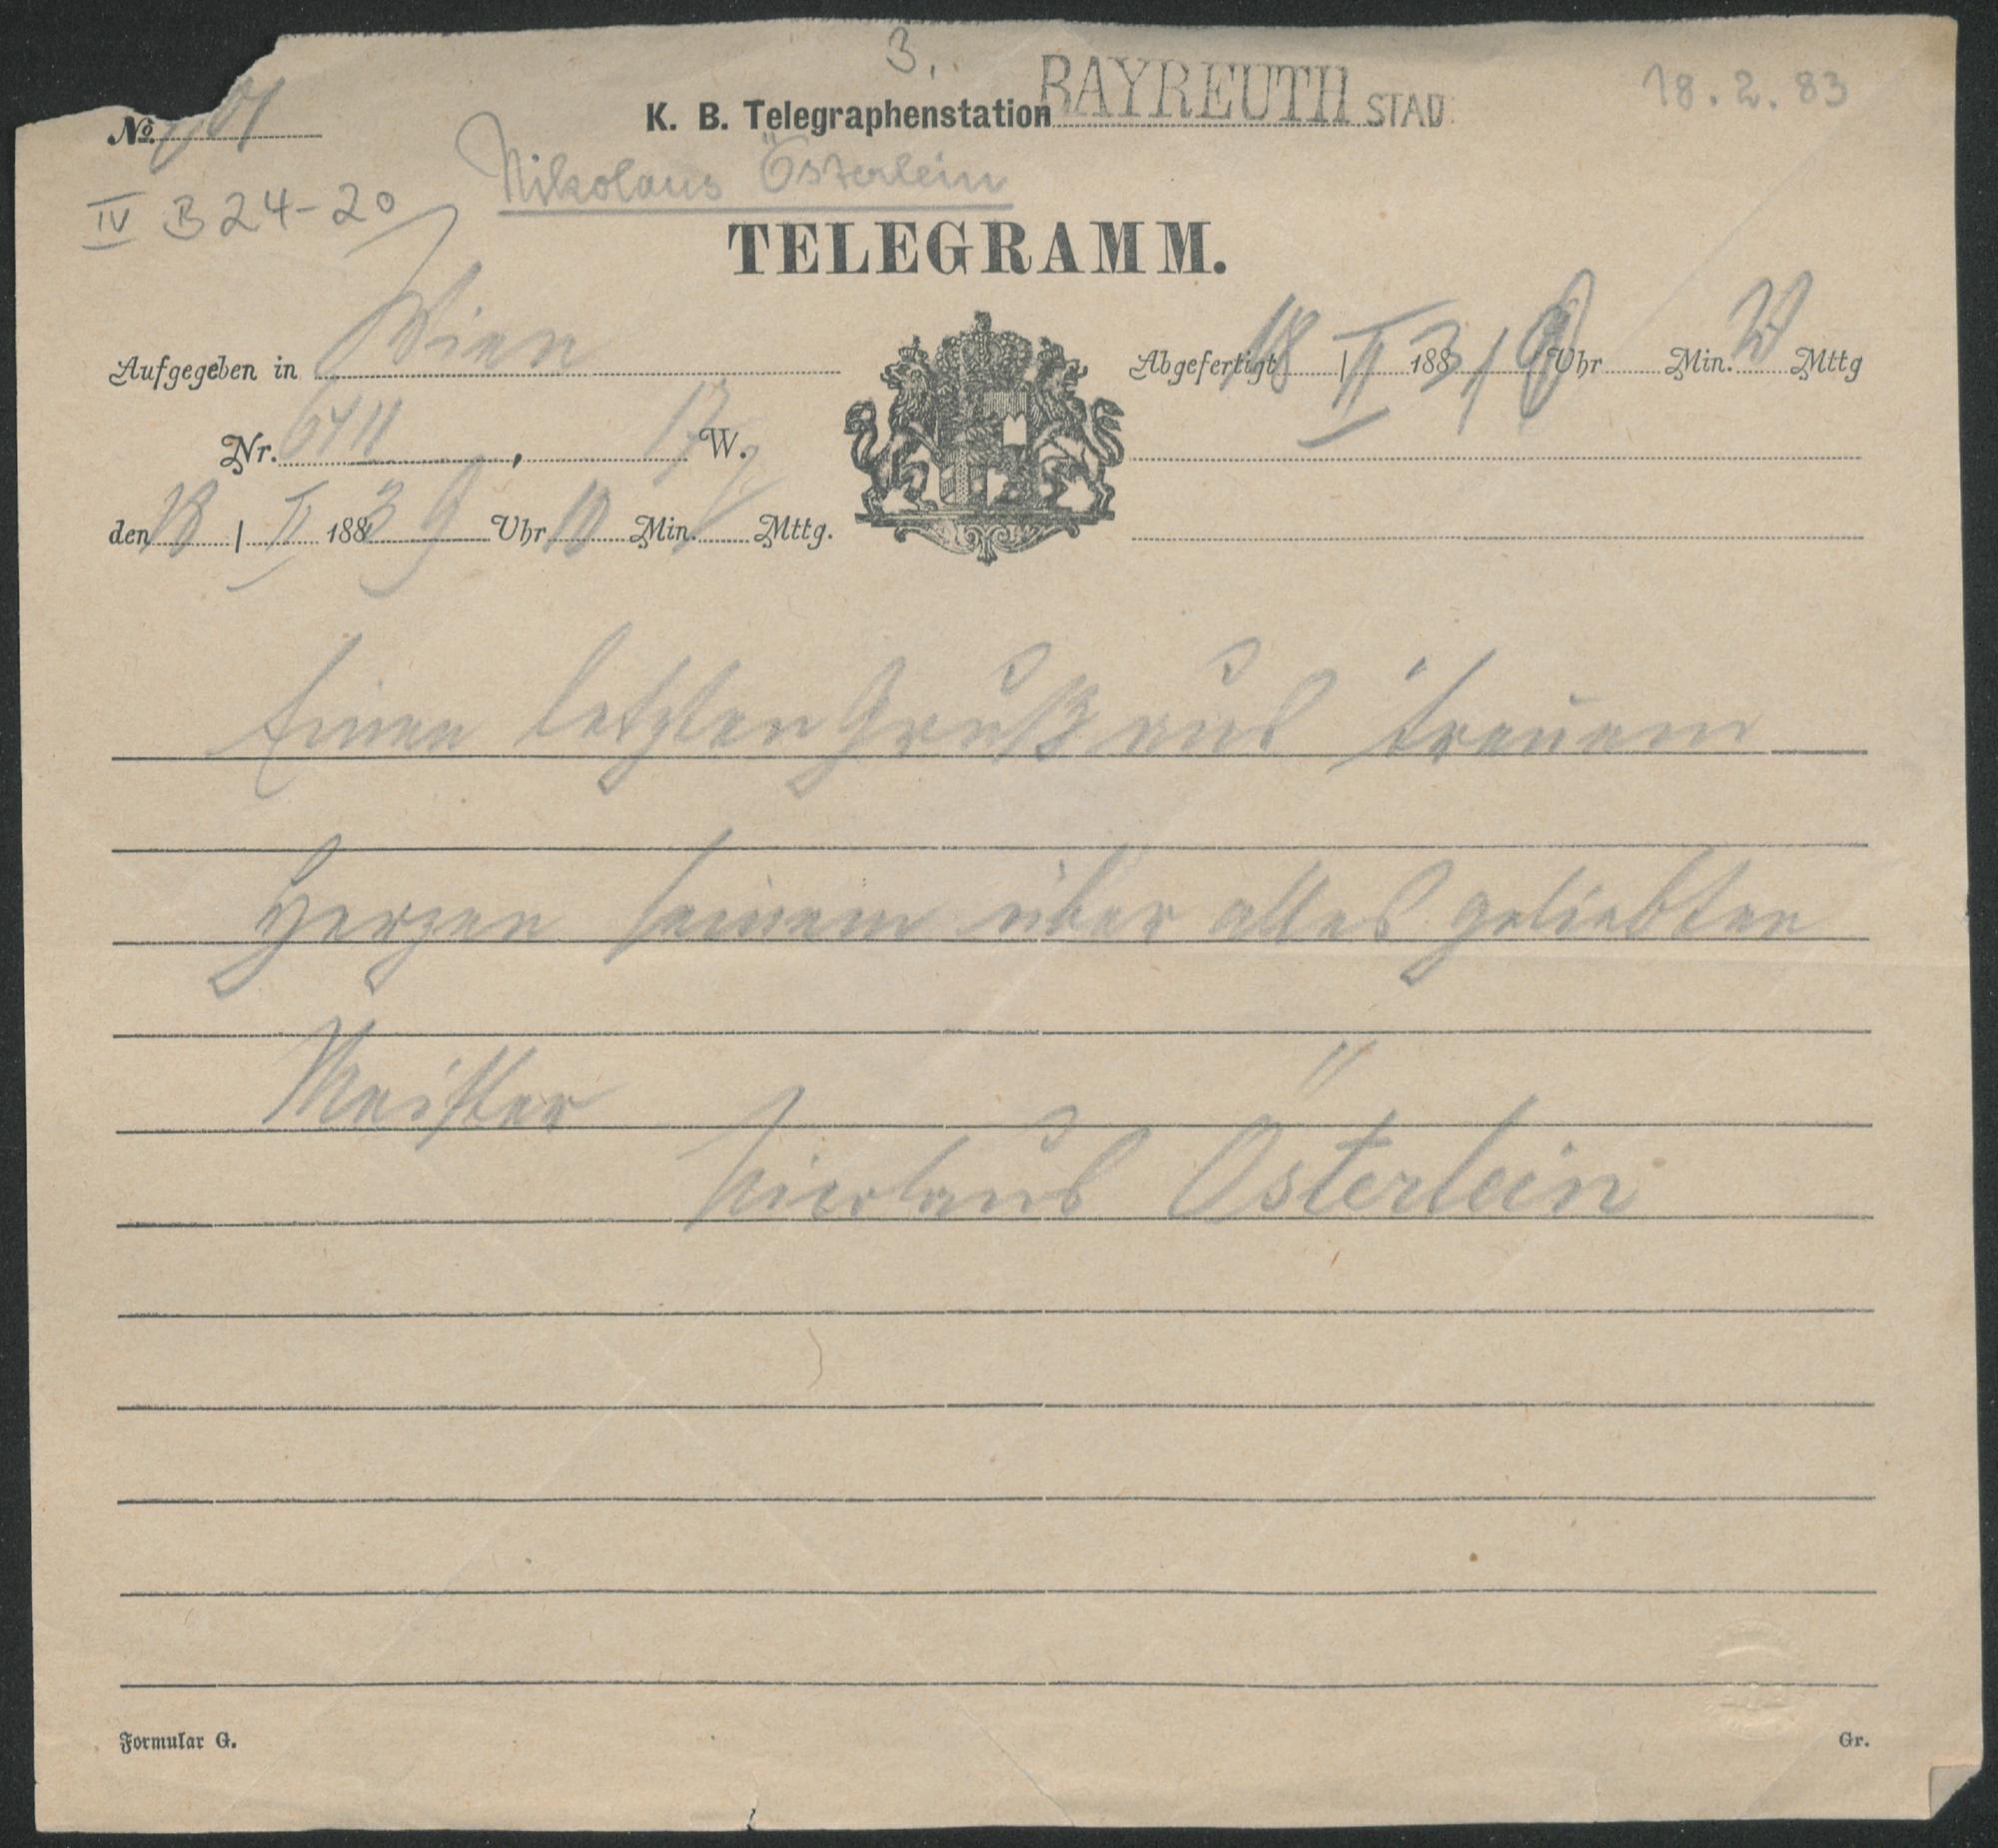 3.
K. B. Telegraphenstation BAYREUTH STADT
18.2.83
No.
Nikolaus Österlein
IV B 24-20
TELEGRAMM.
Aufgegeben in Wien
Abgefertigt 18 | II 1883 Uhr Min. Mttg
Nr. 6411, 17 W.
den 18 | II 1883 9 Uhr 10 Min. Mttg.
Einen letzten Gruß aus treuem
Herzen seinem über alles geliebten
Meister
Nicolaus Österlein
Formular G.
Gr.